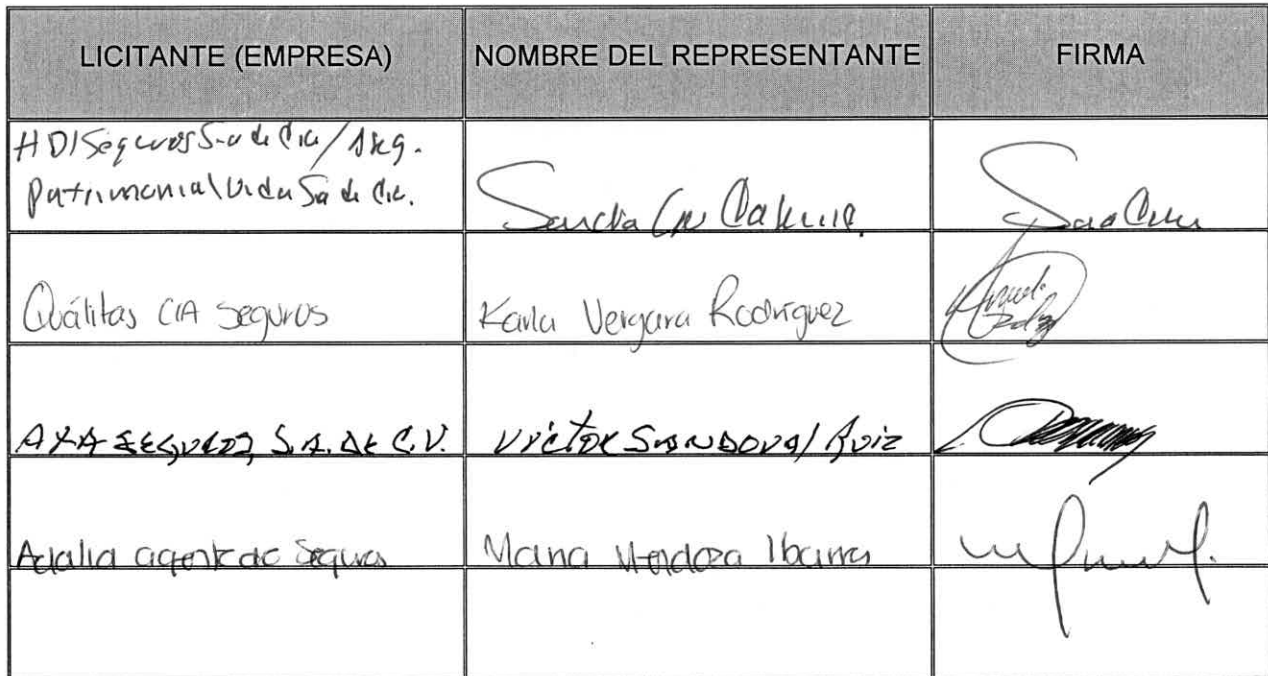 LICITANTE (EMPRESA) NOMBRE DEL REPRESENTANTE FIRMA
HDI Seguros S.a de C.v. / Aseg.
Patrimonial Vida Sa de C.v.
Sandra
Quálitas CIA Seguros Karla Vergara Rodríguez
AXA SEGUROS, S.A. DE C.V. Víctor SANDOVAl Ruiz
Adalia agente de Seguros Maria Mendoza Ibarra